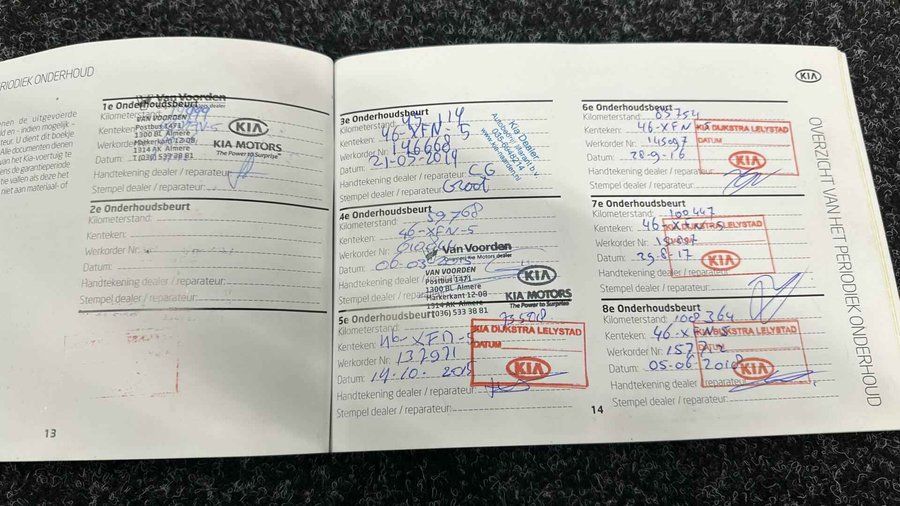 PERIODIEK ONDERHOUD
enen de uitgevoerde
id en - indien mogelijk -
teur. U dient dit boekje
Alle documenten dienen
van het Kia-voertuig te
ens de garantieperiode
te vallen als deze het
niet aan materiaal- of
1e Onderhoudsbeurt
Van Voorden
Kilometerstand:
Kenteken:
Werkorder Nr:
Datum:
VAN VOORDEN
Postbus 1471
1300 BL Almere
Markerkant 12-08
1314 AK Almere
T (036) 533 38 81
KIA
KIA MOTORS
The Power to Surprise
Handtekening dealer / reparateur:
Stempel dealer / reparateur:
2e Onderhoudsbeurt
Kilometerstand:
Kenteken:
Werkorder Nr:
Datum:
Handtekening dealer / reparateur:
Stempel dealer / reparateur:
13
3e Onderhoudsbeurt
Kilometerstand:
Kenteken: 46-XFN-5
Werkorder Nr: 146668
Datum: 21-05-2014
Handtekening dealer / reparateur: CG
Stempel dealer / reparateur: Groot
Kia Dealer
4e Onderhoudsbeurt
Kilometerstand: 59768
Kenteken: 46-XFN-5
Werkorder Nr:
Datum:
Van Voorden
VAN VOORDEN
Postbus 1471
1300 BL Almere
Markerkant 12-08
1314 AK Almere
(036) 533 38 81
KIA
KIA MOTORS
The Power to Surprise
Handtekening dealer / reparateur:
Stempel dealer / reparateur:
5e Onderhoudsbeurt
Kilometerstand:
Kenteken: 46-XFN-5
Werkorder Nr: 137971
Datum: 14-10-2015
KIA DIJKSTRA LELYSTAD
DATUM
KIA
Handtekening dealer / reparateur:
Stempel dealer / reparateur:
14
KIA
6e Onderhoudsbeurt
Kilometerstand: 85754
Kenteken: 46-XFN-5
Werkorder Nr: 145097
Datum: 28-9-16
KIA DIJKSTRA LELYSTAD
DATUM
KIA
Handtekening dealer / reparateur:
Stempel dealer / reparateur:
7e Onderhoudsbeurt
Kilometerstand: 100447
Kenteken: 46-XFN-5
Werkorder Nr:
Datum: 29-8-17
KIA DIJKSTRA LELYSTAD
KIA
Handtekening dealer / reparateur:
Stempel dealer / reparateur:
8e Onderhoudsbeurt
Kilometerstand: 108364
Kenteken: 46-XFN-5
Werkorder Nr:
Datum: 05-06-2018
KIA DIJKSTRA LELYSTAD
DATUM
KIA
Handtekening dealer / reparateur:
Stempel dealer / reparateur:
OVERZICHT VAN HET PERIODIEK ONDERHOUD